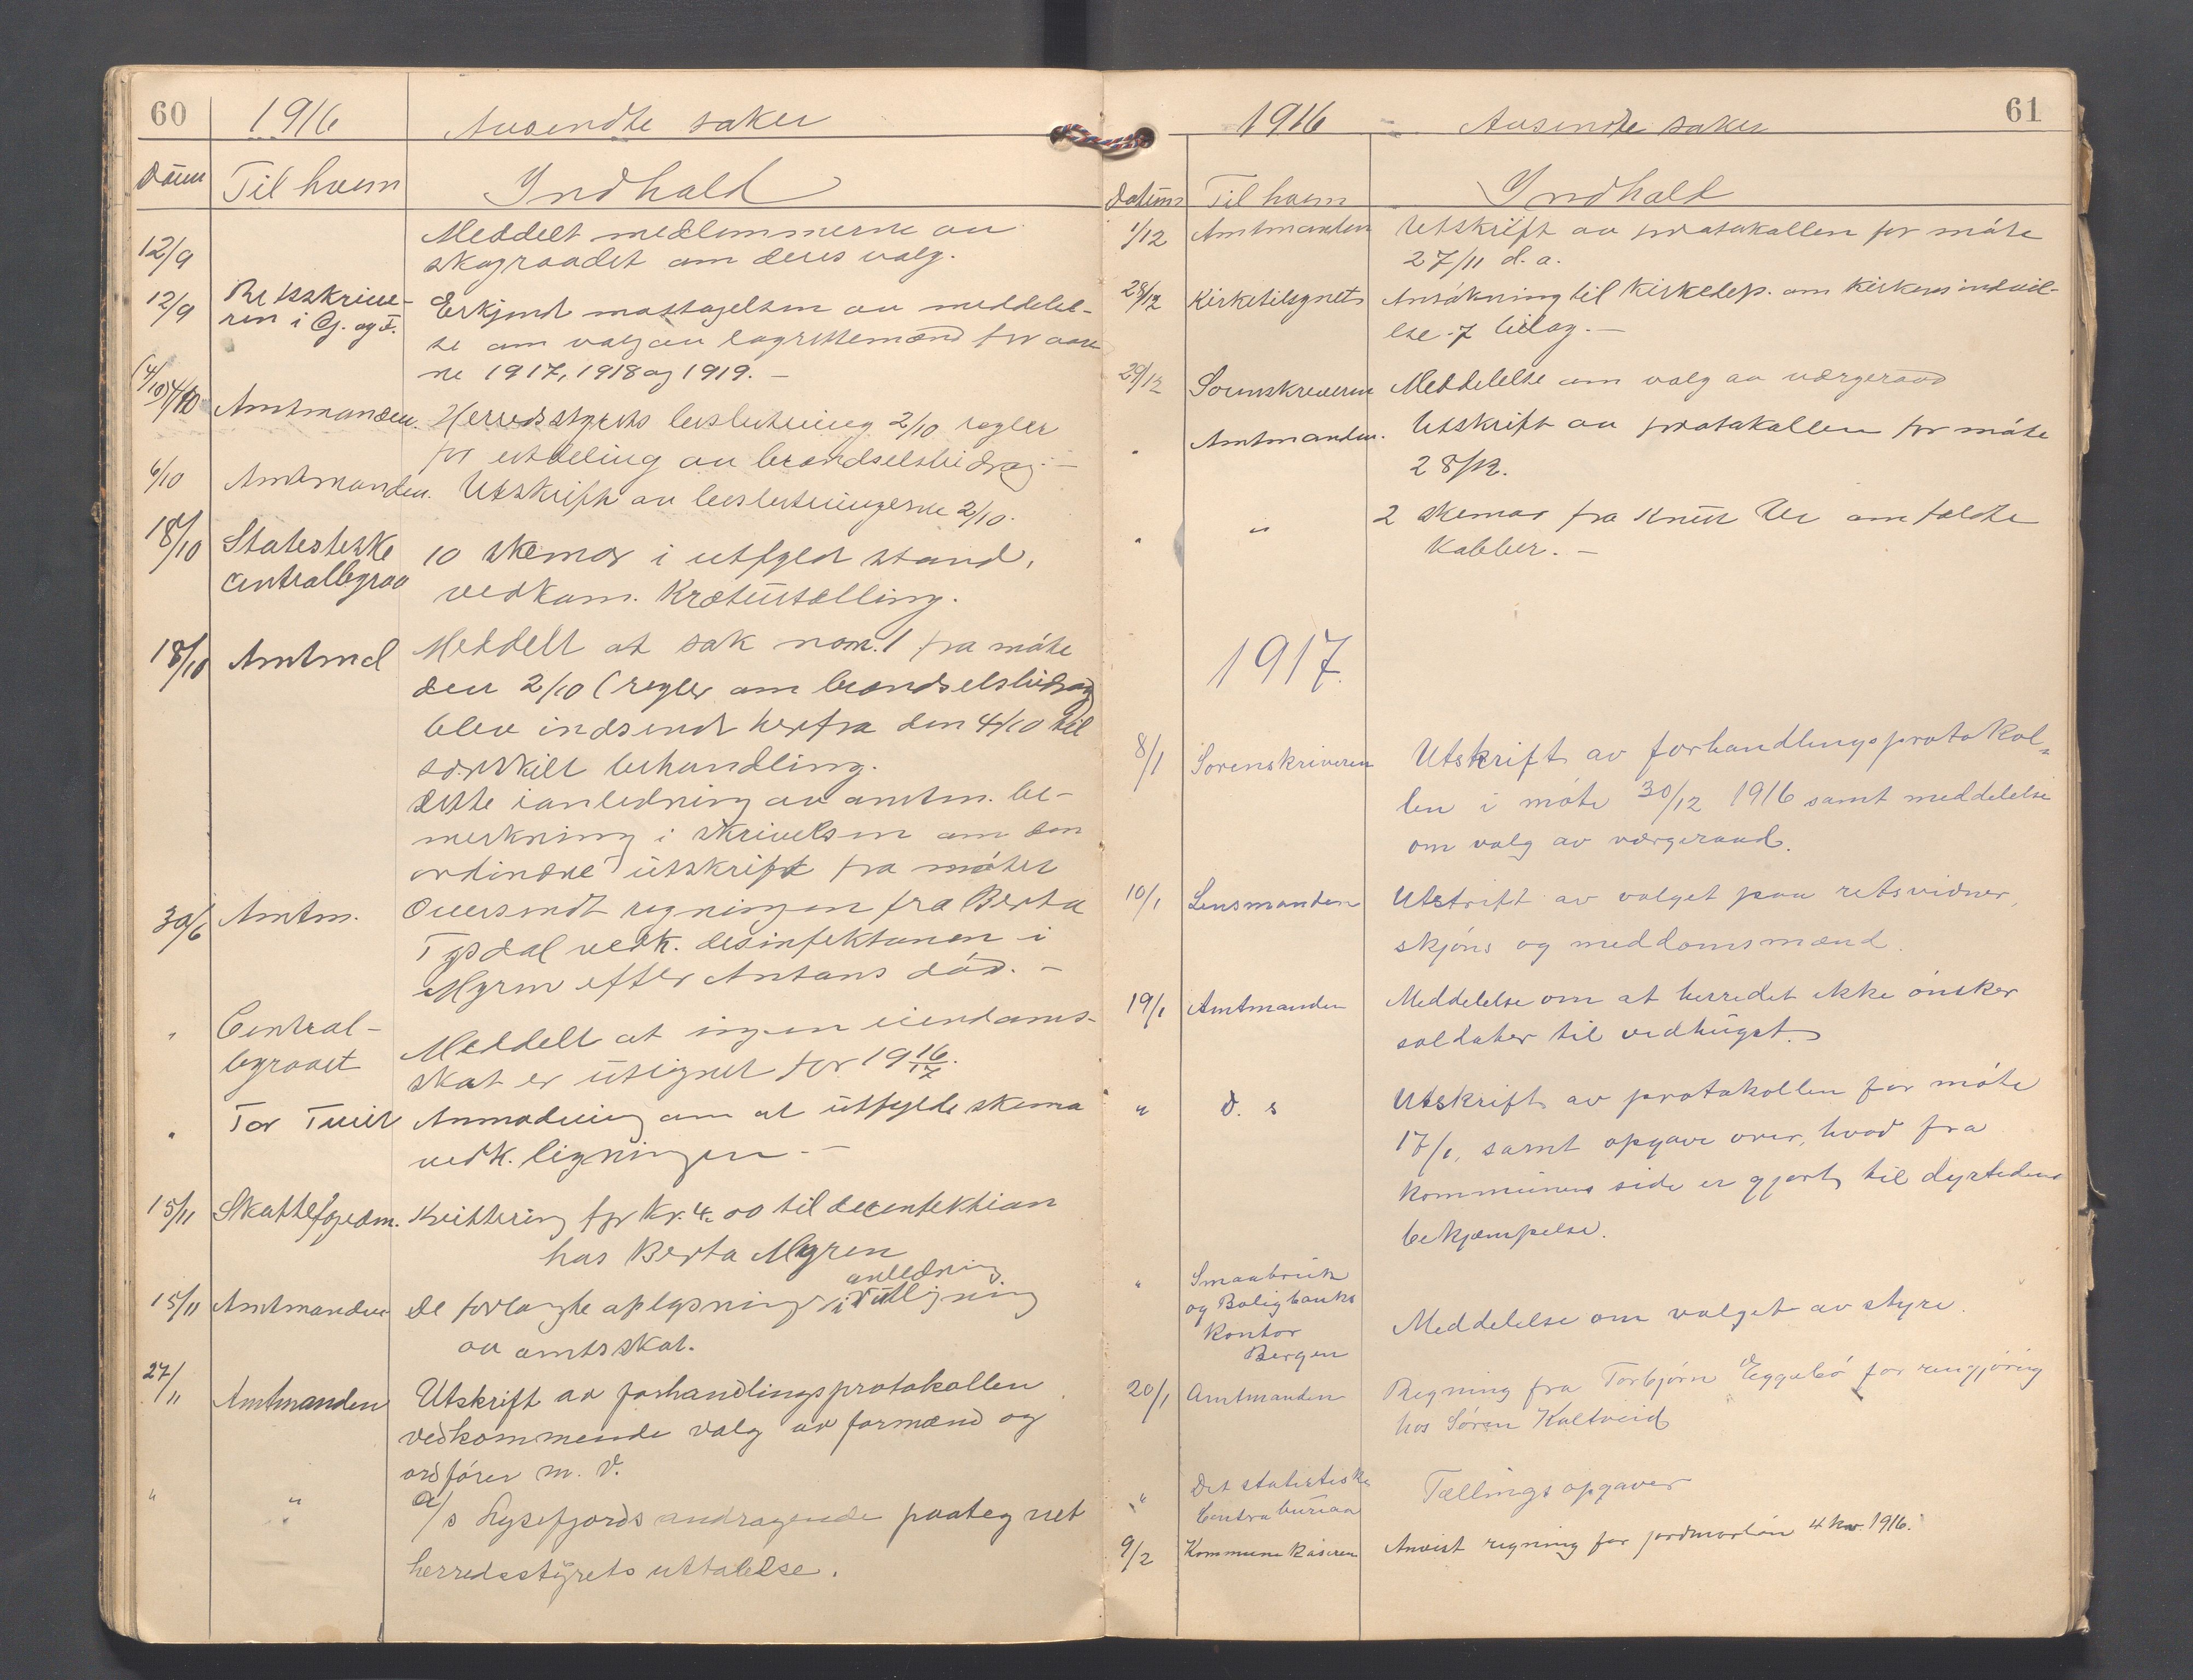 60
1916
Avsendte saker
Datum
Til hvem
Indhold
12/9
Meddelt medlemmerne av
skograadet om deres valg.
12/9
Retsskrive-
ren i Gj. og D.
Erkjendt mottagelsen av meddelel-
se om valg av lagrettemænd for aare
ne 1917, 1918 og 1919. -
(4/10) 4/10
Amtmanden.
Herredsstyrets beslutning 2/10 regler
for utdeling av brændselsbidrag. -
6/10
Amtmanden.
Utskrift av beslutningerne 2/10.
18/10
Statestiske
centralbyraa
10 skemaer i utfyldt stand,
vedkom. Kræturtælling.
18/10
Amtmd
Meddelt at sak nom. 1 fra møte
den 2/10 (regler om brændselsbidrag)
blev indsendt herfra den 4/10 til
særskilt behandling.
dette i anledning av amtm. be-
merkning i skrivelsen om den
ordinære utskrift fra møtet
30/
Amtm.
Oversendt regningen fra Berta
Tysdal vedk. desinfektionen i
Myren efter Antons død. -
"
Central-
byraaet
Meddelt at ingen eiendoms-
skat er utlignet for 19 16/17.
"
Tor Tveit
Anmodning om at utfylde skema
vedk. ligningen. -
15/11
Skattefogedm.
Kvittering for kr. 4.00 til decenfektion
hos Berta Myren
15/11
Amtmanden
anledning
De forlangte oplysninger i utligning
av amtsskat.
27/11
Amtmanden
Utskrift av forhandlingsprotokollen
vedkommende valg av formænd og
ordfører m. v.
"
"
A/s Lysefjords andragende paategnet
herredsstyrets uttalelse.
1916
Avsendte saker
61
Datum
Til hvem
Indhold
1/12
Amtmanden
Utskrift av protokollen for møte
27/11 d. a.
28/12
Kirketilsynet
Ansøkning til Kirkedep. om kirkens indvil-
else. 7 bilag. -
29/12
Sorenskriveren
Meddelelse om valg av værgeraad
"
Amtmanden.
Utskrift av protokollen for møte
28/12.
"
"
2 skemaer fra Knut Ur om fældte
kobber. -
1917.
8/1
Sorenskriveren
Utskrift av forhandlingsprotokol-
len i møte 30/12 1916 samt meddelelse
om valg av værgeraad.
10/1
Lensmanden
Utskrift av valget paa retsvidner,
skjøns og meddomsmænd.
19/1
Amtmanden
Meddelelse om at herredet ikke ønsker
soldater til vedhugst.
"
d. s
Utskrift av protokollen for møte
17/1, samt opgave over, hvad fra
kommunens side er gjort til dyrtidens
bekjæmpelse.
"
Smaabruk
og Boligbanks
Kontor
Bergen
Meddelelse om valget av styre.
20/1
Amtmanden
Regning fra Torbjørn Eggebø for rengjøring
hos Søren Kaltveid
"
Det statistiske
Centrabureaa
Tællings opgaver
9/2
Kommunekaseren
Anvist regning for jordmorløn 4 kv 1916.